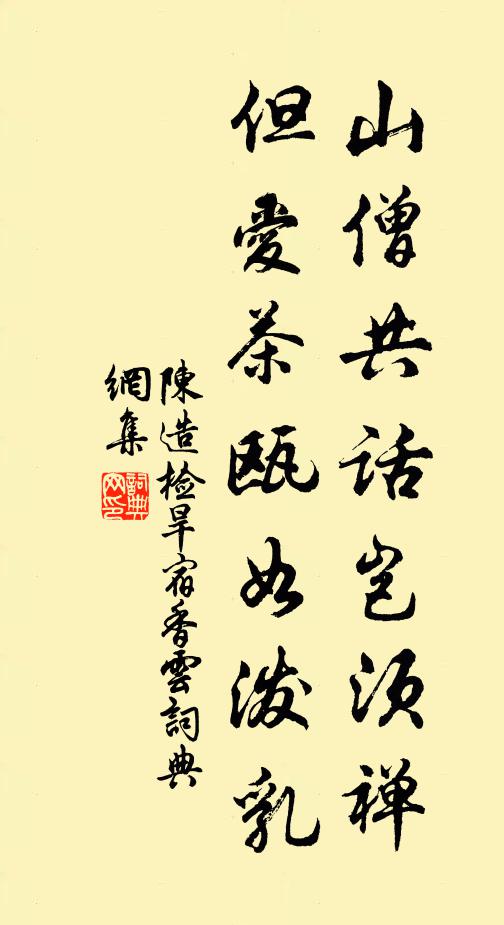 山僧共話岂须禅
但愛茶瓯如泼乳
陳造检旱宿香雲詞典
網集
詞典
网印